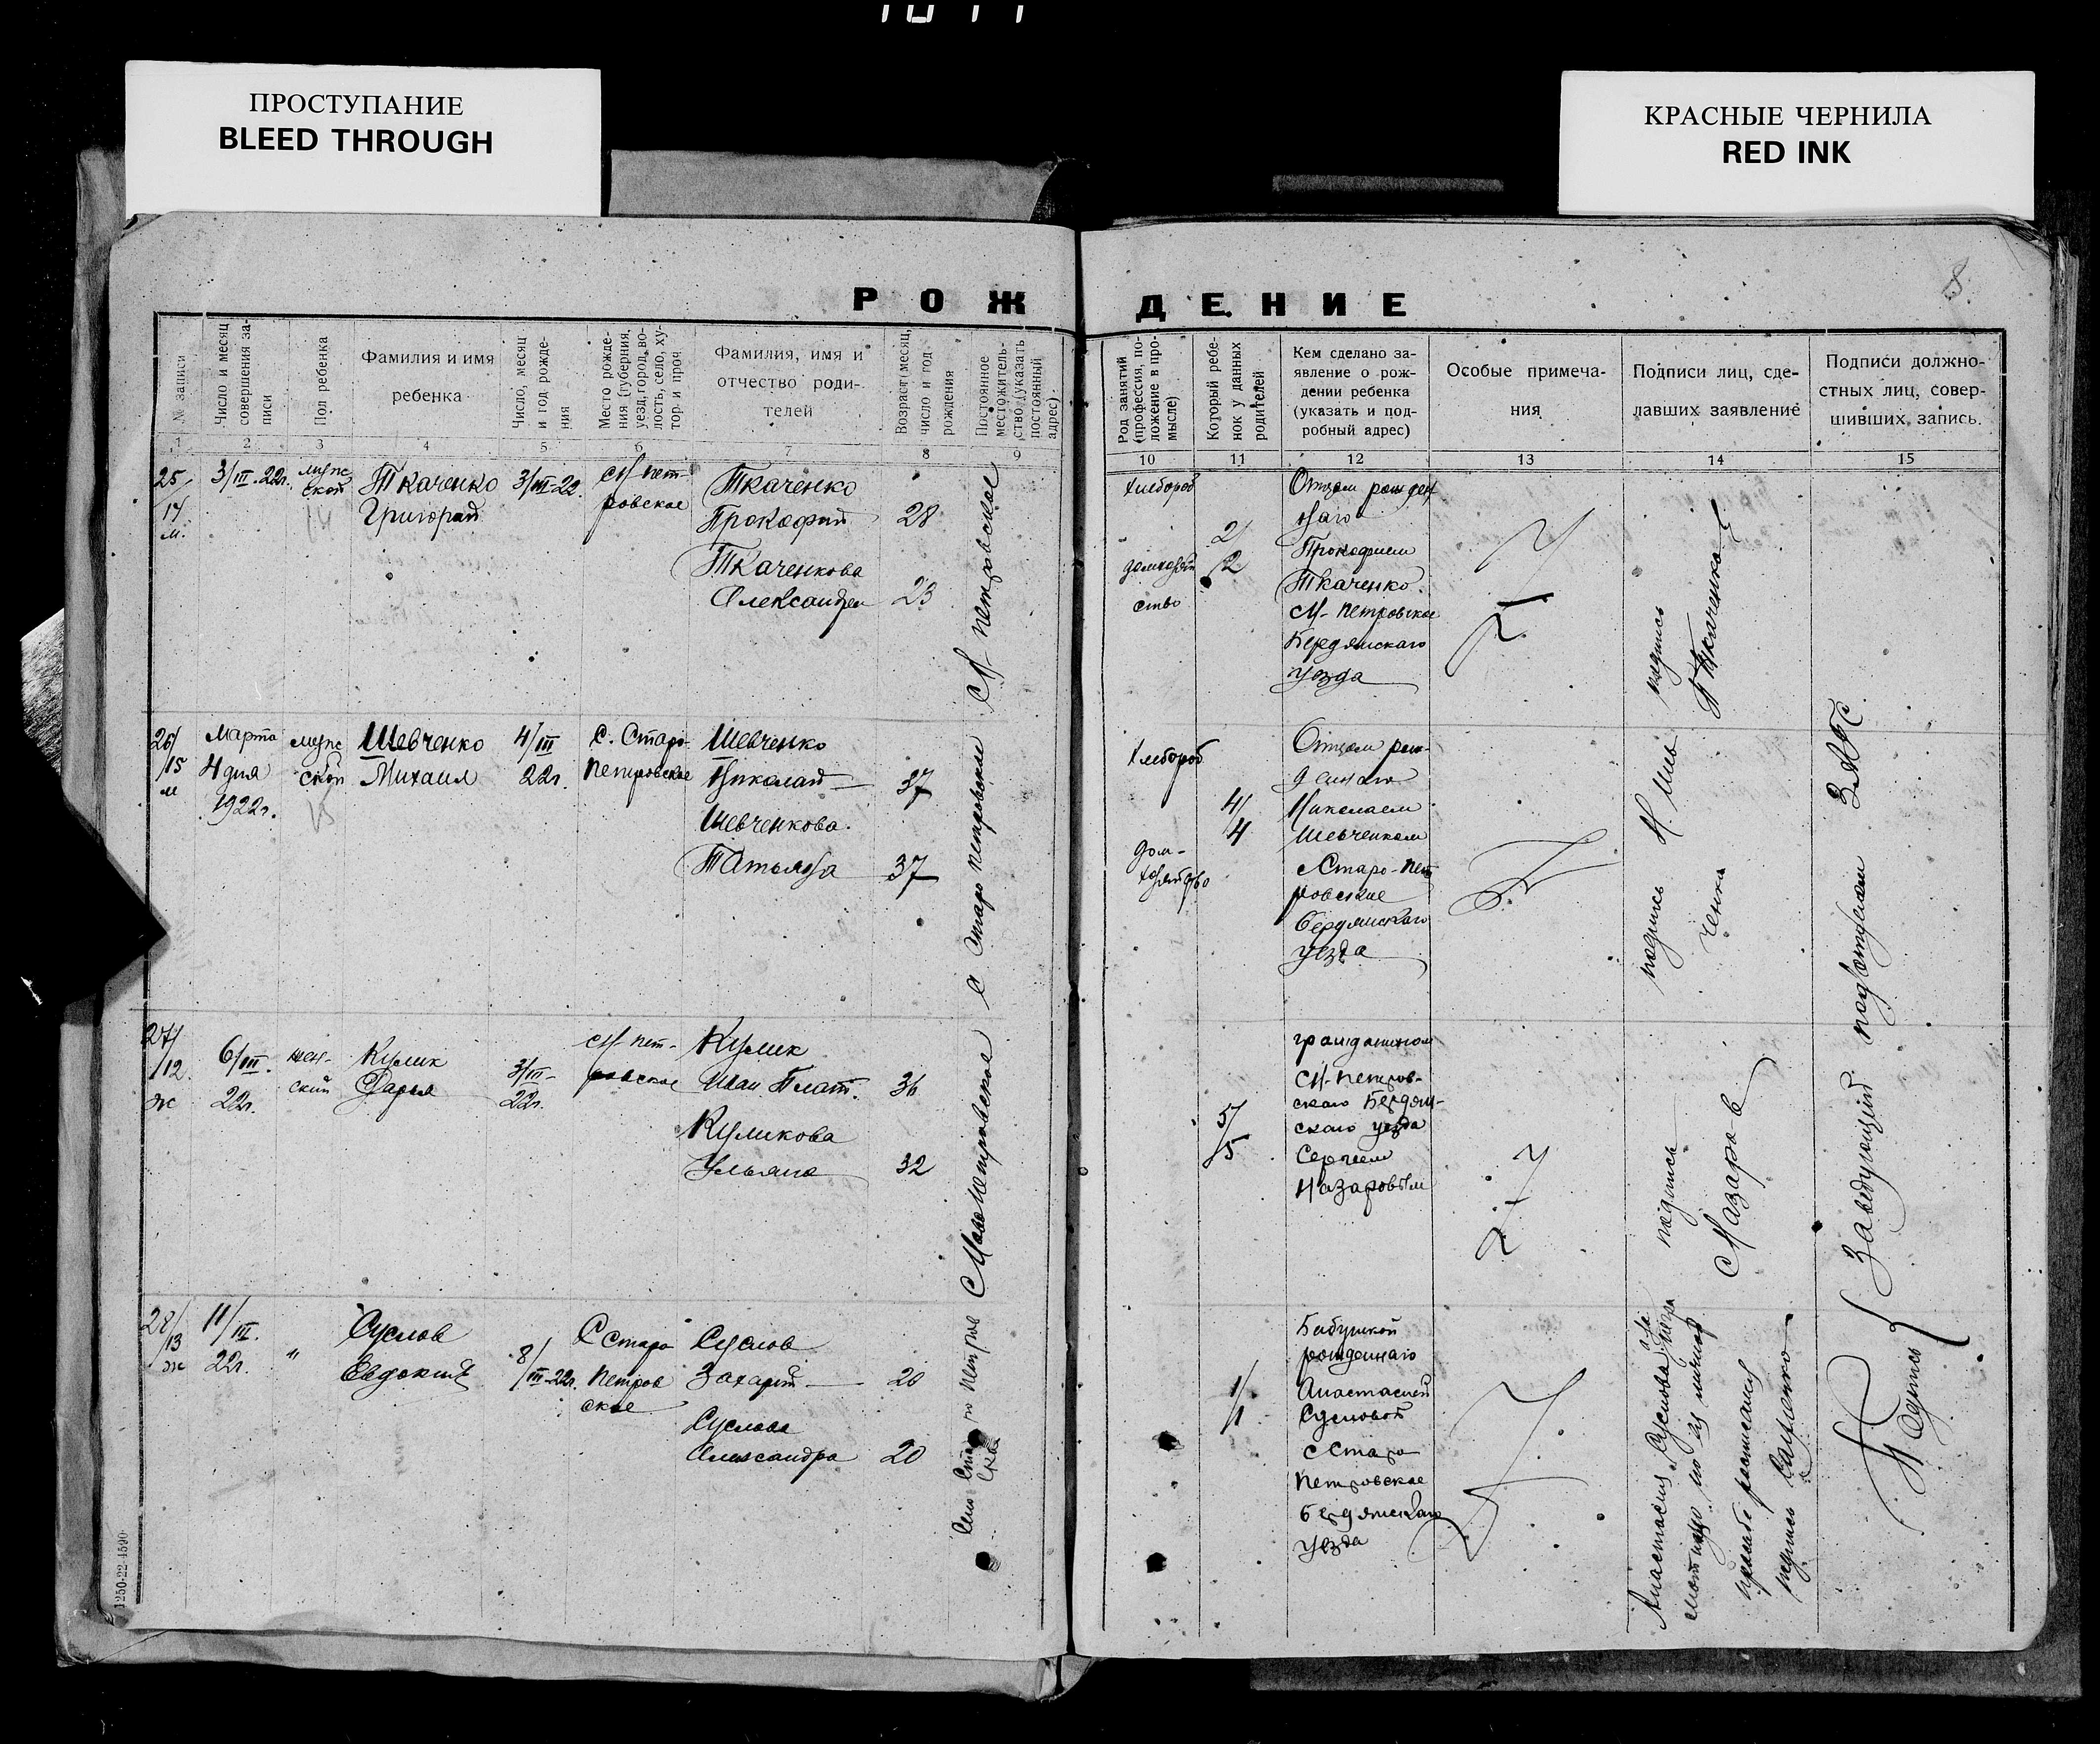 ПРОСТУПАНИЕ
BLEED THROUGH
КРАСНЫЕ ЧЕРНИЛА
RED INK
8.
РОЖДЕНИЕ
№ записи
Число и месяц
совершения за-
писи
Пол ребенка
Фамилия и имя
ребенка
Число, месяц
и год рожде-
ния
Место рожде-
ния (губерния,
уезд, город, во-
лость, село, ху-
тор. и проч
Фамилия, имя и
отчество роди-
телей
Возраст (месяц,
число и год
рождения
Постоянное
местожитель-
ство (указать
постоянный
адрес)
Род занятий
(профессия, по-
ложение в про-
мысле)
Который ребе-
нок у данных
родителей
Кем сделано за-
явление о рож-
дении ребенка
(указать и под-
робный адрес)
Особые примеча-
ния
Подписи лиц, сде-
лавших заявление
Подписи должно-
стных лиц, совер-
шивших запись.
1 2 3 4 5 6 7 8 9
10 11 12 13 14 15
25/
14
м.
3/III-22г.
мужс
ской
Ткаченко
Григорий
3/III-22.
Н-пет-
ровское
Ткаченко
Прокофий 28
Ткаченкова
Александра 23
Н-петровское
Хлебороб
домхозяй
ство
2/
2
Отцом рожден
наго
Прокофием
Ткаченко
Н-петровское
Бердянскаго
уезда
подпись
П Ткаченко
26/
15
м
Марта
4 дня
1922г.
мужс
ской
Шевченко
Михаил
4/III
22г.
с. Старо-
Петровское
Шевченко
Николай 37
Шевченкова.
Татьяна 37
с Старо петровское
Хлебороб
дом-
хозяйство
4/
4
Отцом рож-
деннаго
Николаем
Шевченком
с Старо-пет
ровское
Бердянскаго
уезда
подпись Н. Шев
ченко
27/
12
ж
6/III.
22г.
жен-
ский
Кулик
Дарья
3/III-
22г.
Н-пет-
ровское
Кулик
Иван Плат. 36
Куликова
Ульяна 32
с Ново Петровское
5/
5
гражданином
Н-петров-
скаго Бердян-
скаго уезда
Сергеем
Назаровым
подпись
С Назаров
28/
13
ж
11/III.
22г.
"
Суслов
8/
III-22г.
С Старо
Петров
ское
Суслов
Захарий 20
Суслова
Александра 20
Село Старо петров
ское
1/
1
Бабушкой
рожденнаго
Анастасией
Сусловой
с Старо
Петровское
Бердянскаго
уезда
Анастасия Суслова а за
подпись
Заведующий подотделом ЗАГС
Подпись
1250-22-4590